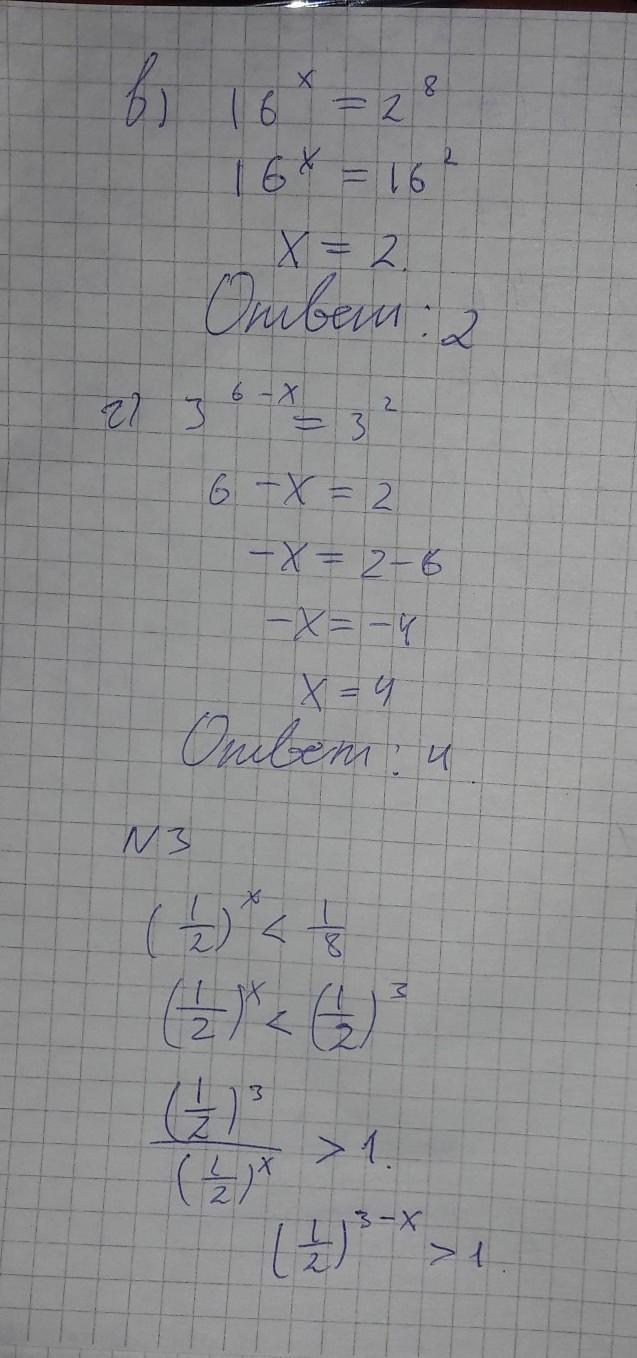 в) 16^x = 2^8
16^x = 16^2
x = 2.
Ответ: 2
г) 3^(6-x) = 3^2
6 - x = 2
-x = 2 - 6
-x = -4
x = 4
Ответ: 4.
N3
(1/2)^x < 1/8
(1/2)^x < (1/2)^3
(1/2)^3 / (1/2)^x > 1.
(1/2)^(3-x) > 1.